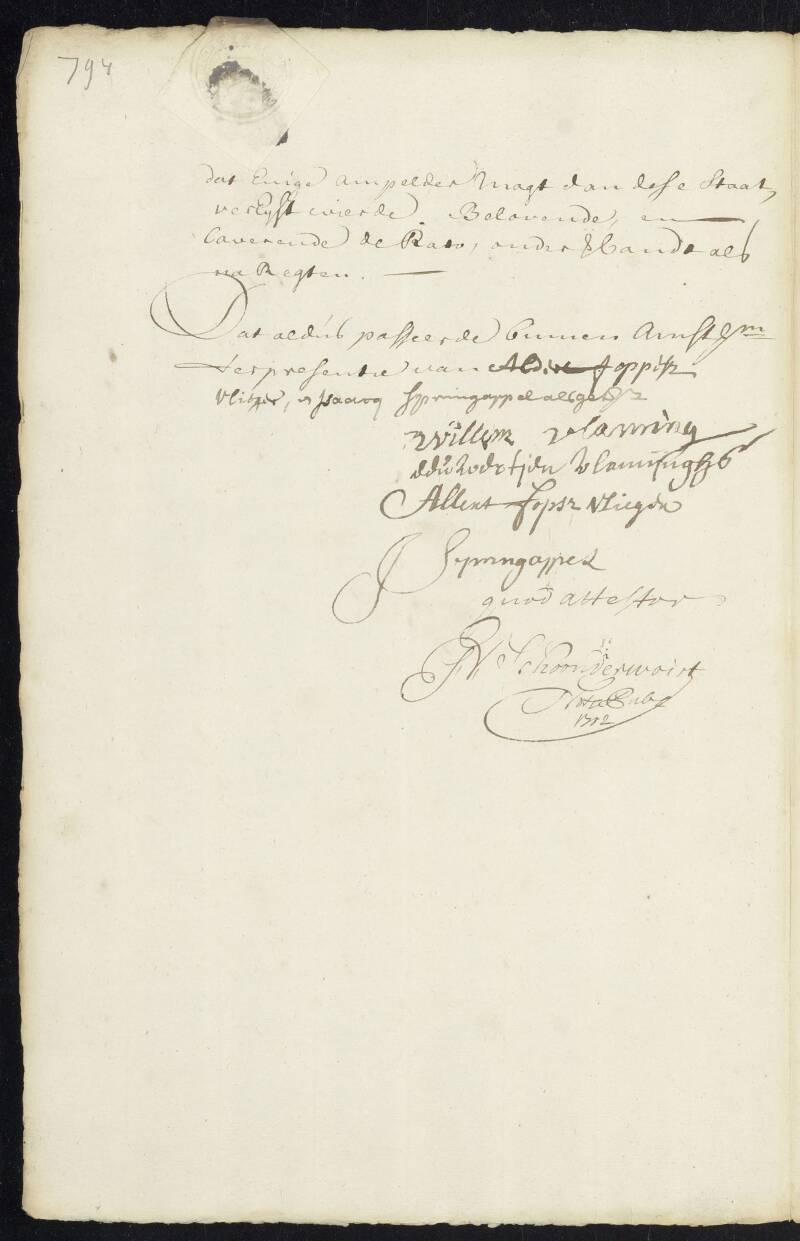 794
dat Enige ampelder Magt dan dese Staat,
verEyst wierde. Belovende, en
Caverende de Rato, onder Verbandt als
na Regten.
Dat aldus passeerde binnen Amstm
ter presentie van Joppisz
Vlieger, en Isaacq Springappel als get
Willem Vlaming
Vlamingh
Allert Jopsz Vlieger
J Springappel
quod attestor
Schoonderwoirt
Nots Pub
1712